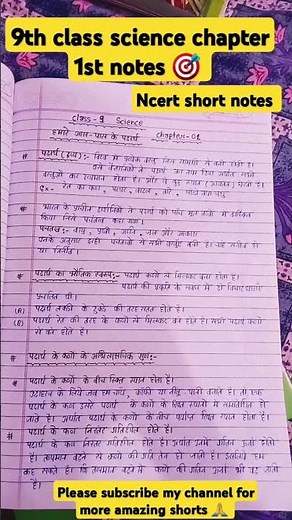 9th class science chapter
1st notes 🎯
Ncert short notes
Class-9 Science
हमारे आस-पास के पदार्थ Chapter-01
# पदार्थ (द्रव्य):- विश्व में प्रत्येक वस्तु जिस सामग्री से बनी होती है।
उसे वैज्ञानिकों ने पदार्थ का नाम दिया
वस्तुओं का द्रव्यमान होता है।
Ex-
# भारत के प्राचीन दार्शनिकों ने पदार्थ को पाँच मूल तत्वों में वर्गीकृत
किया जिसे पंचतत्व कहा गया।
पंचतत्व:- वायु, पृथ्वी, अग्नि, जल और आकाश
उनके अनुसार इन्हीं पंचतत्वों से सभी वस्तुएँ बनी हैं। चाहे सजीव हो
या निर्जीव।
# पदार्थ का भौतिक स्वरूप:- पदार्थ कणों से मिलकर बना होता है।
पदार्थ की प्रकृति के संबंध में दो विचारधाराएँ
प्रचलित थी।
(A) पदार्थ लकड़ी के टुकड़े की तरह सतत होते हैं।
(B) पदार्थ रेत की तरह के कणों से मिलकर बने होते हैं।
# पदार्थ के कणों के अभिलाक्षणिक गुण:-
# पदार्थ के कणों के बीच रिक्त स्थान होता है।
उदाहरण के लिये जब हम चाय, कॉफी या नींबू पानी बनाते हैं। तो एक
पदार्थ के कण दूसरे पदार्थ के कणों के रिक्त स्थानों में समावेशित हो
जाते हैं। अर्थात पदार्थ के कणों के बीच पर्याप्त रिक्त स्थान होता है।
# पदार्थ के कण निरंतर गतिशील होते हैं।
पदार्थ के कण निरंतर गतिशील होते हैं। अर्थात उनमें गतिज ऊर्जा होती
है। तापमान बढ़ने से कणों की गति तेज हो जाती है। इसलिए हम
कह सकते हैं। कि तापमान बढ़ने से कणों की गतिज ऊर्जा भी बढ़ जाती
है।
Please subscribe my channel for
more amazing shorts 🙏